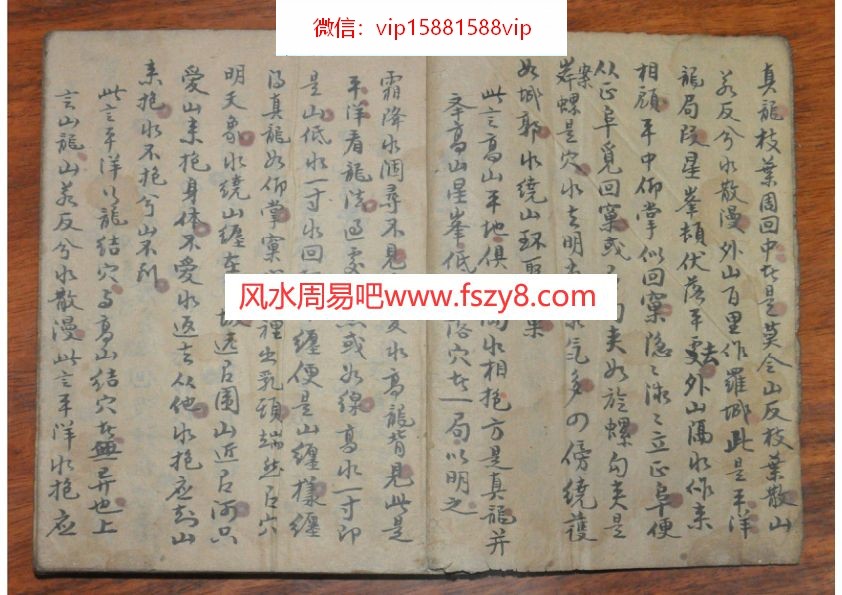 微信：vip15881588vip
真龍枝葉周回中莫令山反枝葉散山
若反兮水散漫外山百里作羅城此是平洋
龍局段星峯頓伏落平去外山隔水作来
相顧平中仰掌似回窠隱隱微微立正阜便
从正阜覓回窠或勾夾如旋螺勾夾是
案
螺是穴水去明多四傍繞護
如城郭水繞山環聚窠
此言高山平地俱水相抱方是真龍并
高山星峯低落穴一局以明之
霜降水涸尋不見水高龍背見此是
平洋看龍法過或如線高水一寸即
是山低水一寸水回纏便是山纏樣纏
得真龍如仰掌窠裡出乳頭端然有穴
明天象水繞山纏在遠有圍山近有河只
愛山来抱身体不愛水返去从他水抱應知山
来抱水不抱兮山不到
此言平洋龍結穴与高山結穴無異也上
言山龍山若反兮水散漫此言平洋水抱應
风水周易吧www.fszy8.com